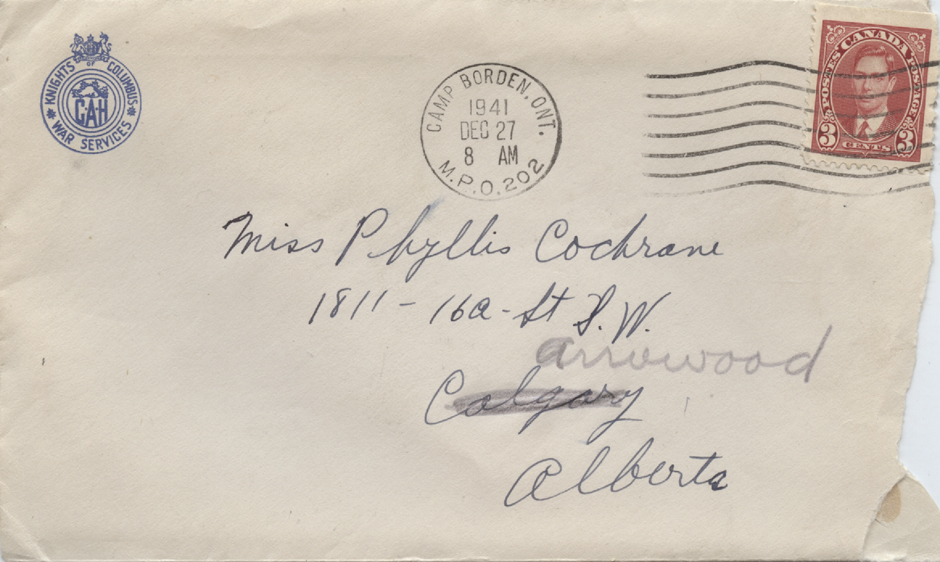 KNIGHTS OF COLUMBUS
CAH
WAR SERVICES
CAMP BORDEN, ONT.
1941
DEC 27
8 AM
M.P.O. 202
POSTES CANADA POSTAGE
3 3
CENTS
Miss Phyllis Cochrane
1811 - 16a - St S.W.
arrowood
Calgary
Alberta